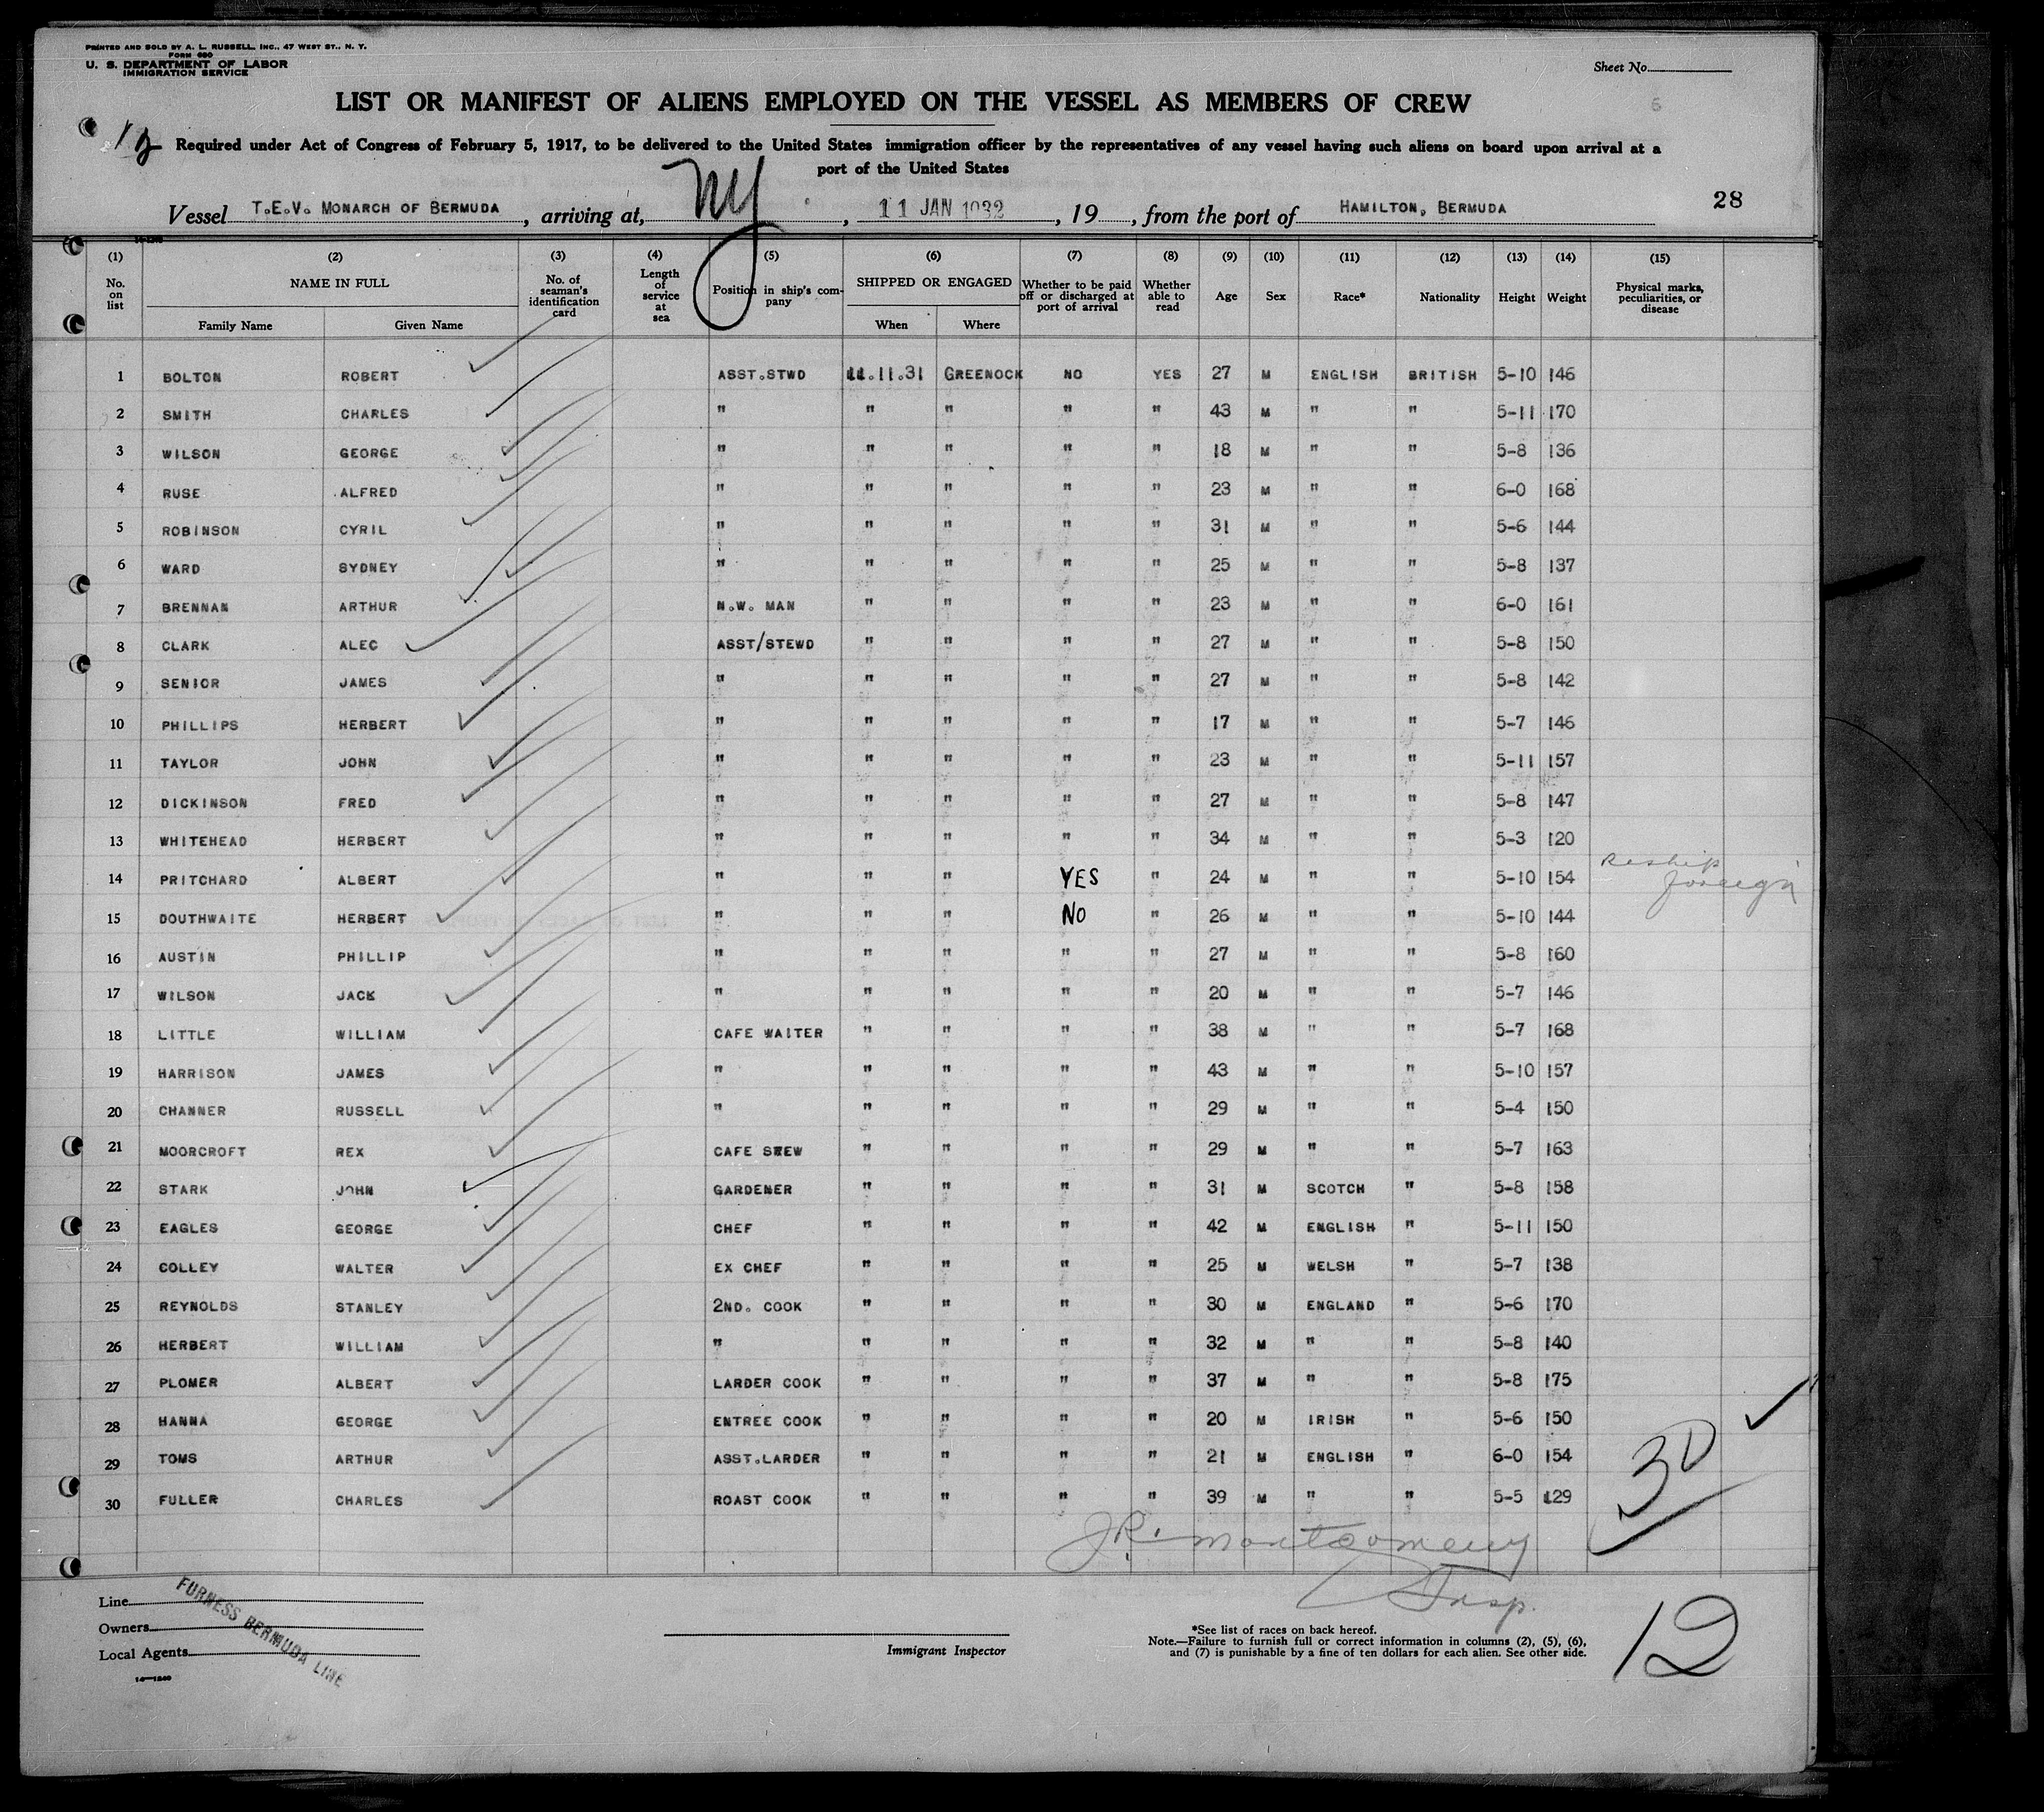 PRINTED AND SOLD BY A. L. RUSSELL, INC., 47 WEST ST., N. Y.
FORM 680
U. S. DEPARTMENT OF LABOR
IMMIGRATION SERVICE
Sheet No.
LIST OR MANIFEST OF ALIENS EMPLOYED ON THE VESSEL AS MEMBERS OF CREW
6
Required under Act of Congress of February 5, 1917, to be delivered to the United States immigration officer by the representatives of any vessel having such aliens on board upon arrival at a
port of the United States
28
Vessel T.E.V. MONARCH OF BERMUDA, arriving at, NY, 11 JAN 1932, 19, from the port of HAMILTON, BERMUDA
(1) (2) (3) (4) (5) (6) (7) (8) (9) (10) (11) (12) (13) (14) (15)
No. on list NAME IN FULL Family Name Given Name No. of seaman's identification card Length of service at sea Position in ship's company SHIPPED OR ENGAGED When Where Whether to be paid off or discharged at port of arrival Whether able to read Age Sex Race* Nationality Height Weight Physical marks, peculiarities, or disease
1 BOLTON ROBERT ASST.STWD 11.11.31 GREENOCK NO YES 27 M ENGLISH BRITISH 5-10 146
2 SMITH CHARLES " " " " " 43 M " " 5-11 170
3 WILSON GEORGE " " " " " 18 M " " 5-8 136
4 RUSE ALFRED " " " " " 23 M " " 6-0 168
5 ROBINSON CYRIL " " " " " 31 M " " 5-6 144
6 WARD SYDNEY " " " " " 25 M " " 5-8 137
7 BRENNAN ARTHUR N.W. MAN " " " " 23 M " " 6-0 161
8 CLARK ALEC ASST/STEWD " " " " 27 M " " 5-8 150
9 SENIOR JAMES " " " " " 27 M " " 5-8 142
10 PHILLIPS HERBERT " " " " " 17 M " " 5-7 146
11 TAYLOR JOHN " " " " " 23 M " " 5-11 157
12 DICKINSON FRED " " " " " 27 M " " 5-8 147
13 WHITEHEAD HERBERT " " " " " 34 M " " 5-3 120
14 PRITCHARD ALBERT " " " YES " 24 M " " 5-10 154 Reship foreign
15 DOUTHWAITE HERBERT " " " NO " 26 M " " 5-10 144
16 AUSTIN PHILLIP " " " " " 27 M " " 5-8 160
17 WILSON JACK " " " " " 20 M " " 5-7 146
18 LITTLE WILLIAM CAFE WAITER " " " " 38 M " " 5-7 168
19 HARRISON JAMES " " " " " 43 M " " 5-10 157
20 CHANNER RUSSELL " " " " " 29 M " " 5-4 150
21 MOORCROFT REX CAFE STEW " " " " 29 M " " 5-7 163
22 STARK JOHN GARDENER " " " " 31 M SCOTCH " 5-8 158
23 EAGLES GEORGE CHEF " " " " 42 M ENGLISH " 5-11 150
24 COLLEY WALTER EX CHEF " " " " 25 M WELSH " 5-7 138
25 REYNOLDS STANLEY 2ND. COOK " " " " 30 M ENGLAND " 5-6 170
26 HERBERT WILLIAM " " " " " 32 M " " 5-8 140
27 PLOMER ALBERT LARDER COOK " " " " 37 M " " 5-8 175
28 HANNA GEORGE ENTREE COOK " " " " 20 M IRISH " 5-6 150
29 TOMS ARTHUR ASST.LARDER " " " " 21 M ENGLISH " 6-0 154
30 FULLER CHARLES ROAST COOK " " " " 39 M " " 5-5 129
30
J.R. Montgomery
Insp.
Line
Owners
Local Agents
FURNESS BERMUDA LINE
Immigrant Inspector
*See list of races on back hereof.
Note.—Failure to furnish full or correct information in columns (2), (5), (6),
and (7) is punishable by a fine of ten dollars for each alien. See other side.
12